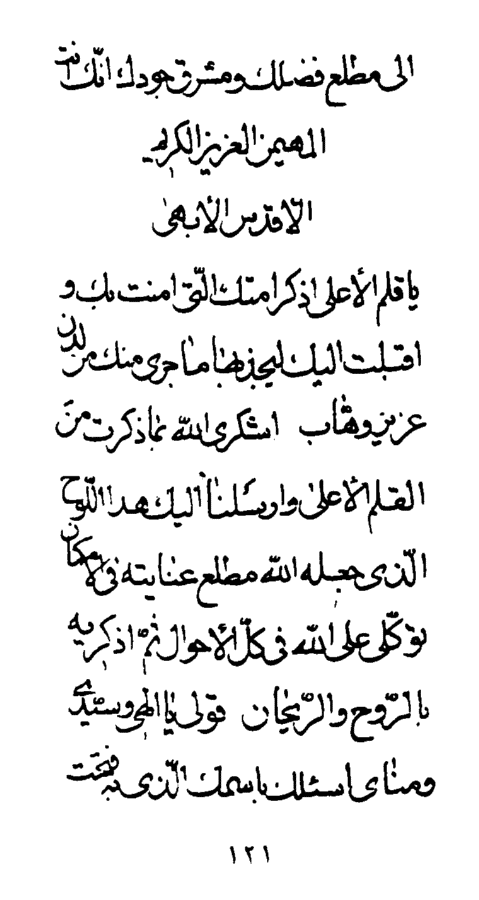 الى مطلع فضلك و مشرق جودك انّك انت
المهيمن العزيز الكريم
الأقدس الأبهى
يا قلم الأعلى اذكر امتك الّتى امنت بك و
اقبلت اليك ليجذبها ما جرى منك من لدن
عزيز وهّاب اشكرى اللّه بما ذكرت من
القلم الأعلى و ارسلنا اليك هذا اللّوح
الّذى جعله اللّه مطلع عنايته فى الأمكان
توكّلى على اللّه فى كلّ الأحوال ثمّ اذكريه
بالرّوح والرّيحان قولى يا الهى و سيّدى
و مناى اسئلك باسمك الّذى به فتحت
١٢١